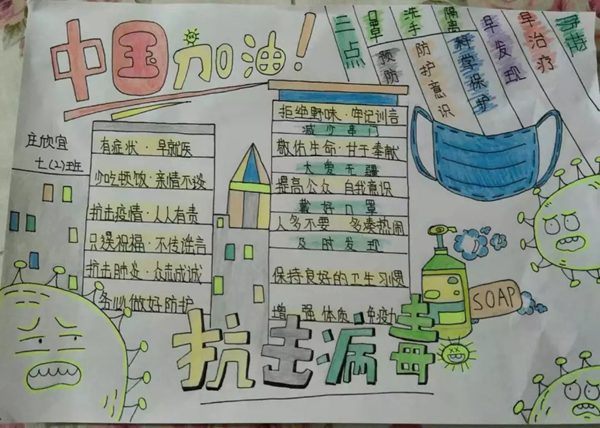 中国加油!
二点
口罩
预防
洗手
防护意识
隔离
科学保护
早发现
早治疗
庄欣宜
七(2)班
有症状·早就医
少吃顿饭·亲情不淡
抗击疫情·人人有责
只送祝福·不传谣言
抗击肺炎·众志成诚
务必做好防护
拒绝野味·牢记训言
减少串门
敬佑生命·甘于奉献
大爱无疆
提高公众 自我意识
戴好口罩
人多不要 多凑热闹
及时发现
保持良好的卫生习惯
增强体质 免疫力
SOAP
抗击病毒